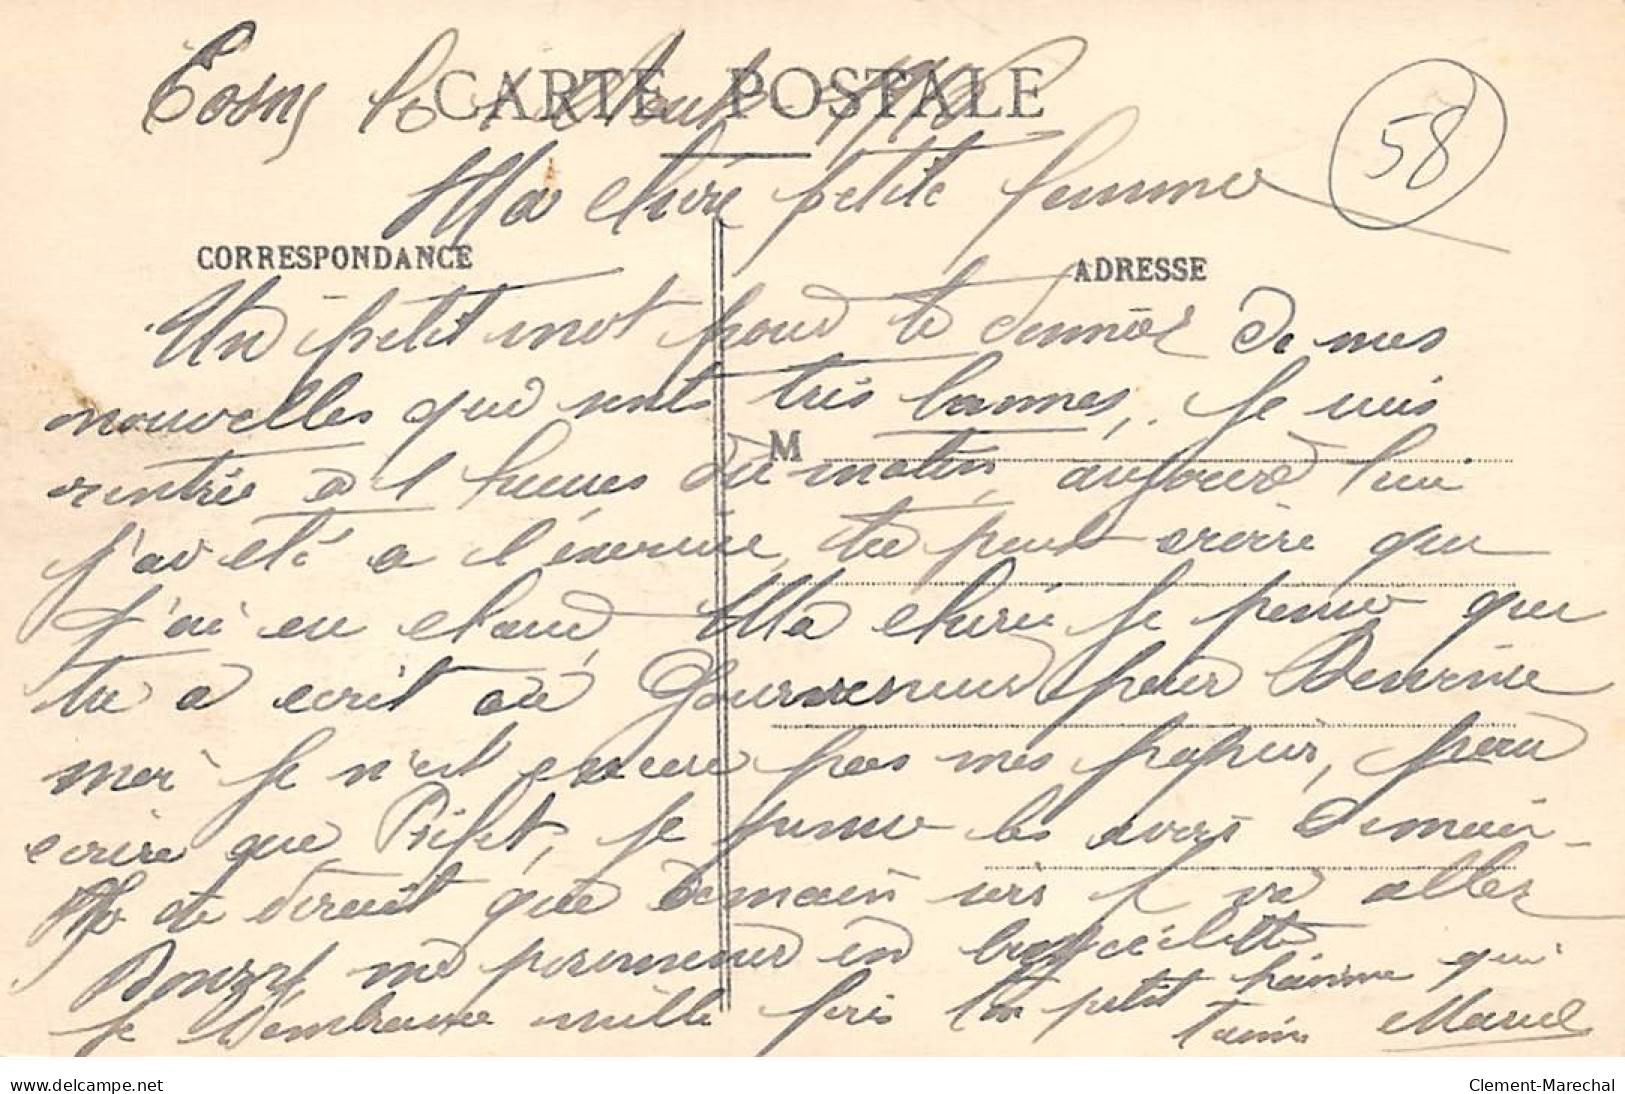 Cosne le Août
CARTE POSTALE
58
Ma chère petite femme
CORRESPONDANCE
ADRESSE
Un petit mot pour te donner de mes
nouvelles qui sont très bonnes, Je suis
M
rentrée a 1 heures du matin, aujourd hui
j'ai eté a l'exercice, tu peut croire que
j'ai eu chaud, Ma cherie je pense que
tu a ecrit au Gouverneur pour
moi je n'est encore pas mes papier,
ecrire que Prefet, je pense les avoir demain
te dirait que demain soir je va aller
Donzy me promener en bicyclette
Je t'embrasse mille fois ton petit homme qui
t'aime Marcel
delcampe.net
Clement-Marechal